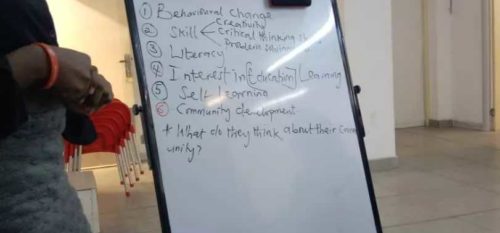 ① Behavioural change
Creativity
② Skill
Critical thinking
Problem solving
③ Literacy
④ Interest in [Education] Learning
⑤ Self Learning
⑥ Community development
* What do they think about their Comm
unity?